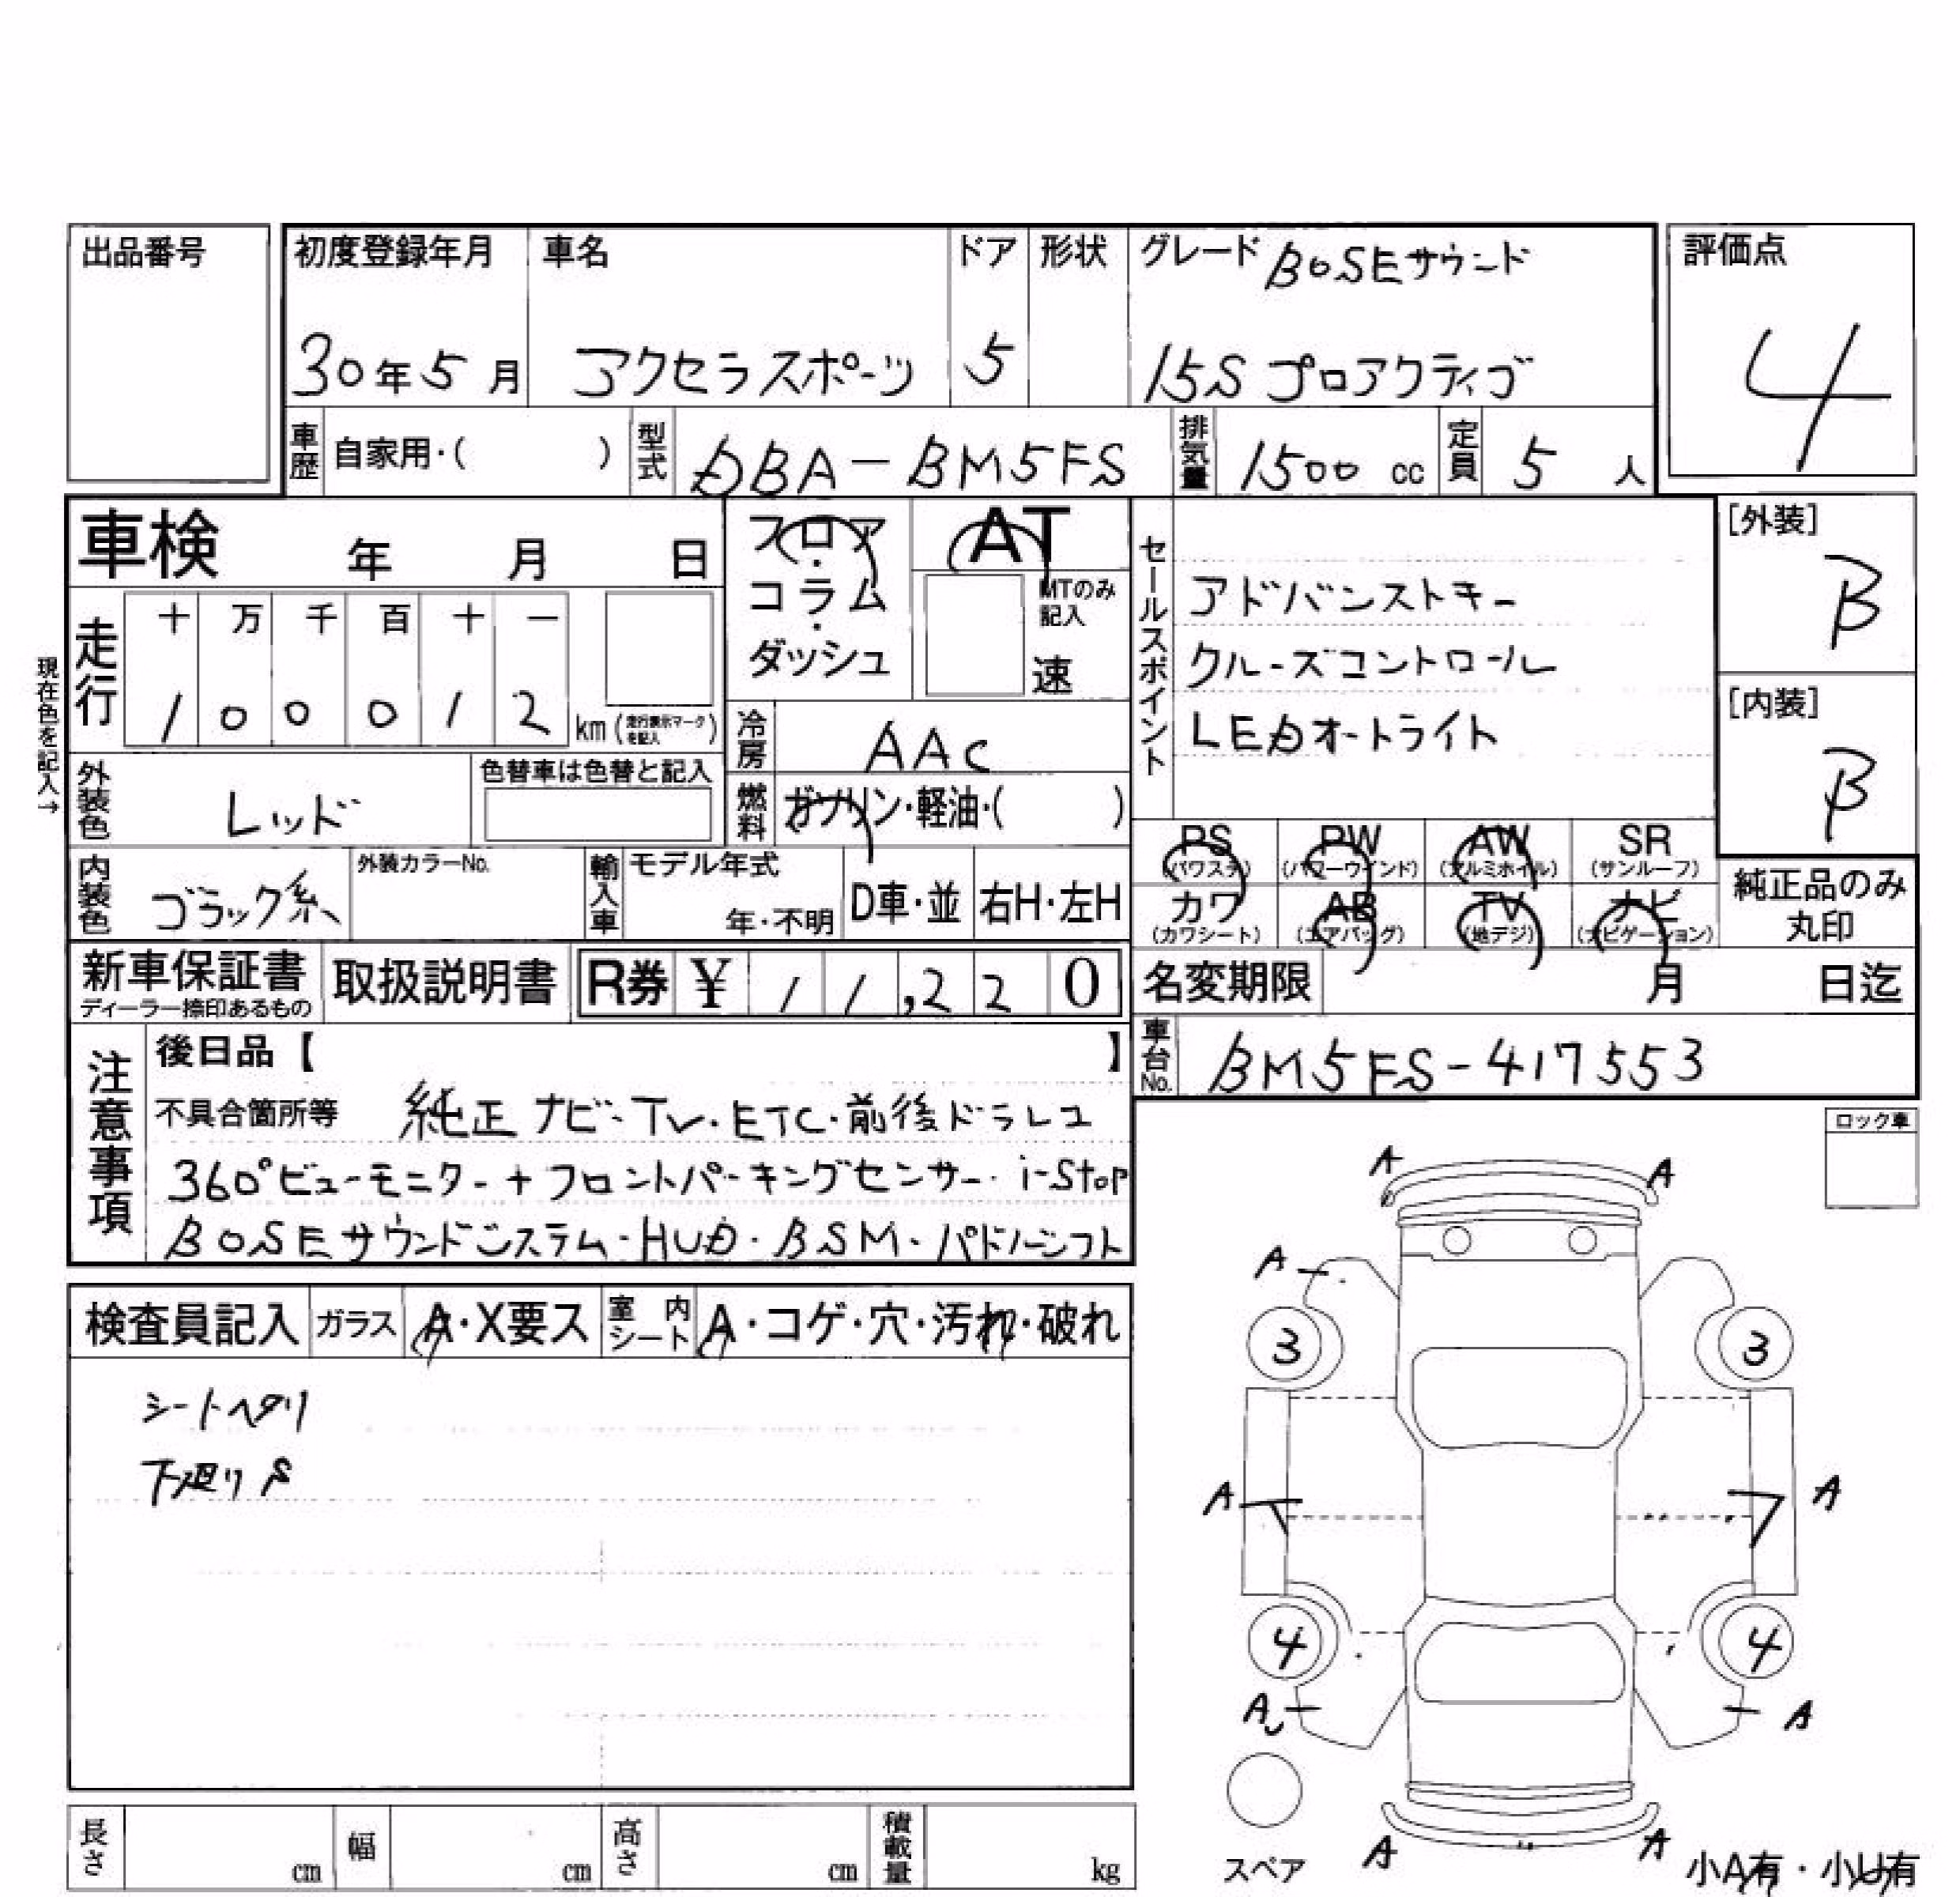 出品番号
初度登録年月 車名 ドア 形状 グレード BOSEサウンド 評価点
30年5月 アクセラスポーツ 5 15S プロアクティブ 4
車歴 自家用・( ) 型式 DBA-BM5FS 排気量 1500 cc 定員 5 人
車検 年 月 日 フロア・コラム・ダッシュ AT
MTのみ記入
速
セールスポイント
アドバンストキー
クルーズコントロール
LEDオートライト
[外装] B
[内装] B
現在色を記入→
走行 十 万 千 百 十 一
1 0 0 0 1 2 km (走行表示マークを記入)
冷房 AAC
外装色 レッド 色替車は色替と記入
燃料 ガソリン・軽油・( )
PS (パワステ) PW (パワーウインド) AW (アルミホイル) SR (サンルーフ)
カワ (カワシート) AB (エアバッグ) TV (地デジ) ナビ (ナビゲーション)
純正品のみ丸印
内装色 ブラック系 外装カラーNo. 輸入車 モデル年式 年・不明 D車・並 右H・左H
新車保証書 ディーラー捺印あるもの 取扱説明書 R券 ¥ 11,220
名変期限 月 日迄
車台No. BM5FS-417553
注意事項
後日品【 】
不具合箇所等 純正ナビ・TV・ETC・前後ドラレコ
360°ビューモニター+フロントパーキングセンサー・i-Stop
BOSEサウンドシステム・HUD・BSM・パドルシフト
ロック車
検査員記入 ガラス A・X要ス 室内シート A・コゲ・穴・汚れ・破れ
シートヘタリ
下廻りS
A A
A
3 3
A A
4 4
A A
A A
スペア
小A有・小U有
長さ cm 幅 cm 高さ cm 積載量 kg